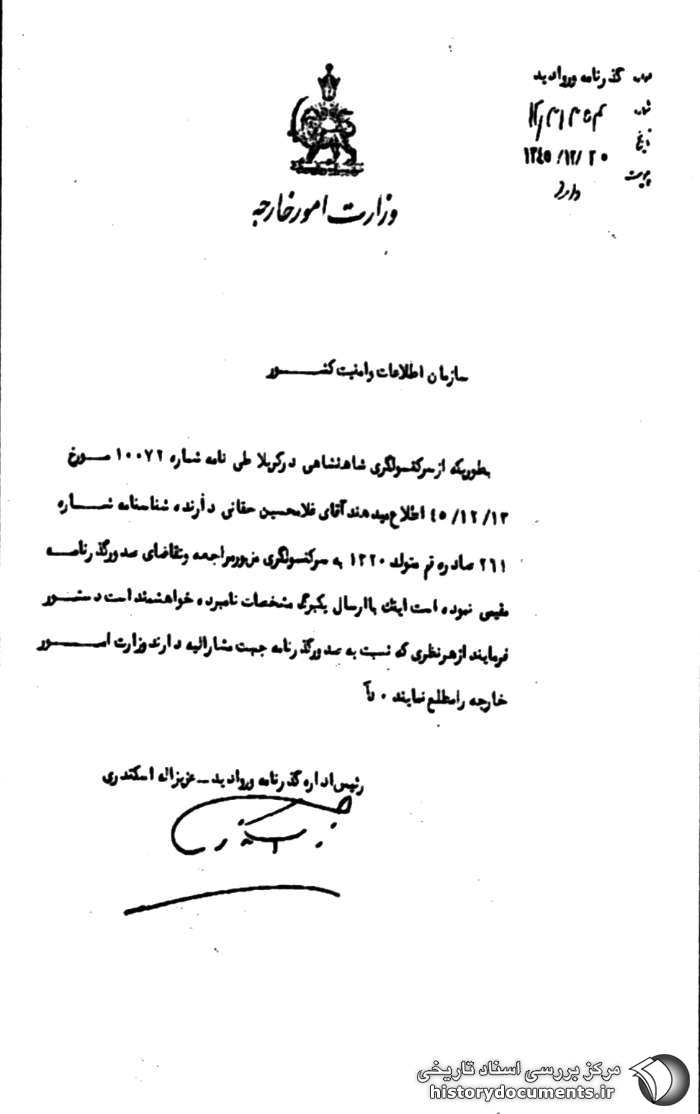 اداره گذرنامه وروادید
شماره
تاریخ ۱۳۴۵/۱۲/۲۰
پیوست دارد
وزارت امورخارجه
سازمان اطلاعات وامنیت کشـــــور
بطوریکه ازسرکنسولگری شاهنشاهی درکربلا طی نامه شماره ۱۰۰۷۲ مــورخ
۴۵/۱۲/۱۳ اطلاع میدهند آقای غلامحسین حقانی دارنده شناسنامه شـــماره
۲۶۱ صادره قم متولد ۱۳۲۰ به سرکنسولگری مزبورمراجعه وتقاضای صدورگذرنامــه
مقیمی نموده است اینک باارسال یکبرگ مشخصات نامبرده خواهشمنداست دستــور
فرمایند ازهرنظری که نسبت به صدورگذرنامه جهت مشارالیه دارند وزارت امــــور
خارجه رامطلع نمایند ۰
رئیس اداره گذرنامه وروادید ــ عزیزاله اسکندری
مرکز بررسی اسناد تاریخی
historydocuments.ir